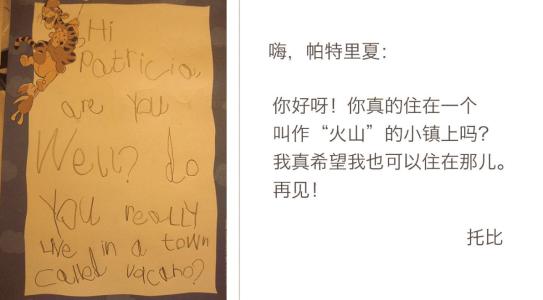 Hi
Patricia,
are you
Well? do
you really
Live in a town
called vocano?
嗨，帕特里夏：
你好呀！你真的住在一个
叫作“火山”的小镇上吗？
我真希望我也可以住在那儿。
再见！
托比